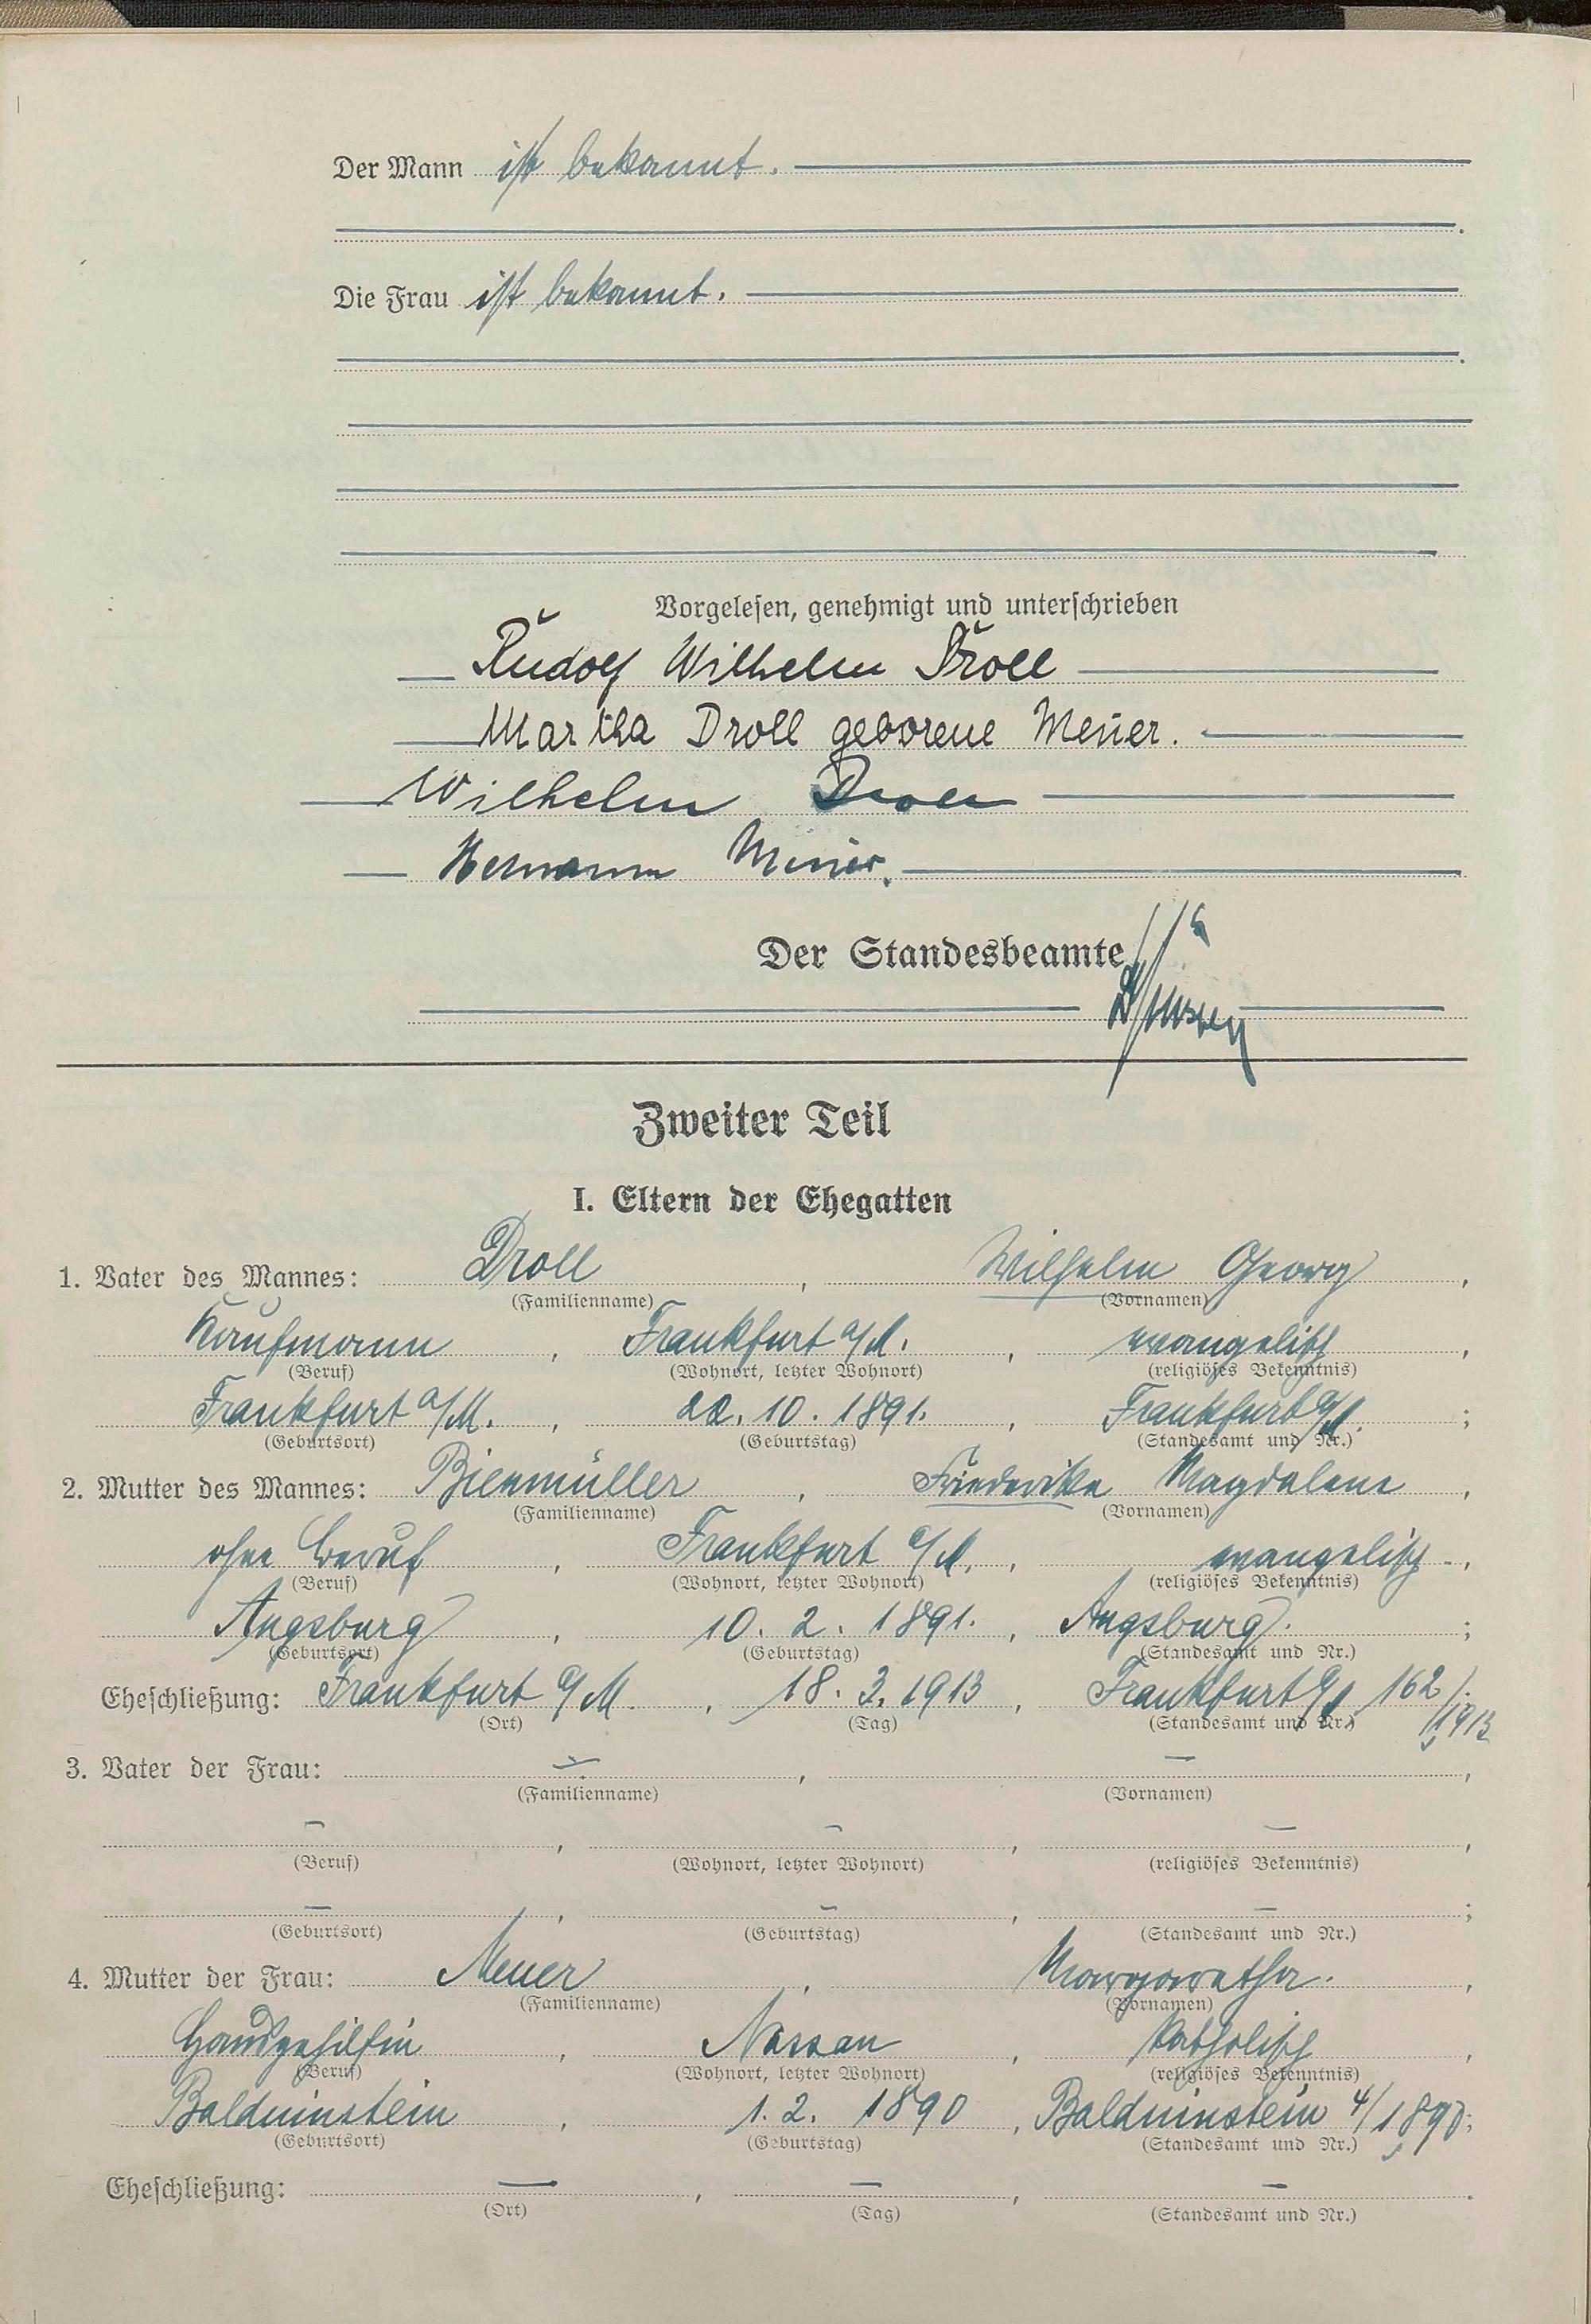 Der Mann ist bekannt.
Die Frau ist bekannt.
Vorgelesen, genehmigt und unterschrieben
Rudolf Wilhelm Droll
Martha Droll geborene Meuer.
Wilhelm Droll
Hermann
Der Standesbeamte
Zweiter Teil
I. Eltern der Ehegatten
1. Vater des Mannes: Droll, Wilhelm Georg,
(Familienname) (Vornamen)
Kaufmann, Frankfurt a/M., evangelisch,
(Beruf) (Wohnort, letzter Wohnort) (religiöses Bekenntnis)
Frankfurt a/M., 22. 10. 1891., Frankfurt a/M.;
(Geburtsort) (Geburtstag) (Standesamt und Nr.)
2. Mutter des Mannes: Bienmüller, Friederike Magdalene,
(Familienname) (Vornamen)
ohne Beruf, Frankfurt a/M., evangelisch,
(Beruf) (Wohnort, letzter Wohnort) (religiöses Bekenntnis)
Augsburg, 10. 2. 1891., Augsburg.;
(Geburtsort) (Geburtstag) (Standesamt und Nr.)
Eheschließung: Frankfurt a/M., 18. 3. 1913, Frankfurt a/M 162/1913.
(Ort) (Tag) (Standesamt und Nr.)
3. Vater der Frau: —, —,
(Familienname) (Vornamen)
—, —, —,
(Beruf) (Wohnort, letzter Wohnort) (religiöses Bekenntnis)
—, —, —;
(Geburtsort) (Geburtstag) (Standesamt und Nr.)
4. Mutter der Frau: Meuer, Margaretha.,
(Familienname) (Vornamen)
Hausgehilfin, Nassau, katholisch,
(Beruf) (Wohnort, letzter Wohnort) (religiöses Bekenntnis)
Balduinstein, 1. 2. 1890, Balduinstein 4/1890;
(Geburtsort) (Geburtstag) (Standesamt und Nr.)
Eheschließung: —, —, —.
(Ort) (Tag) (Standesamt und Nr.)